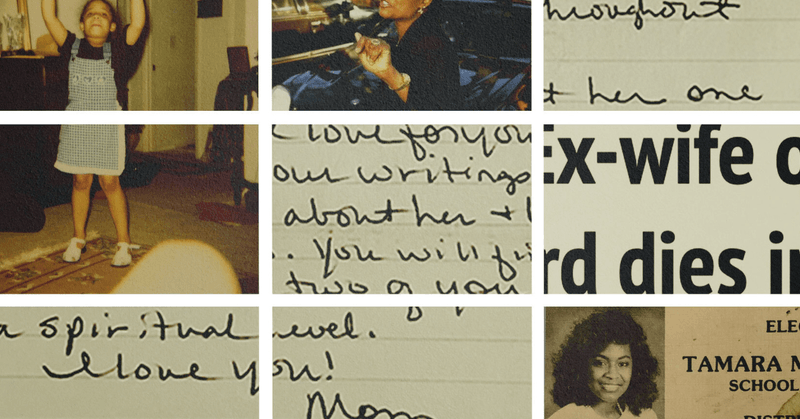 throughout
her one
love for you
our writings
about her +
Ex-wife o
You will
rd dies i
two of you
a spiritual level.
I love you!
Mom
ELEC
TAMARA M
SCHOOL
DISTRI